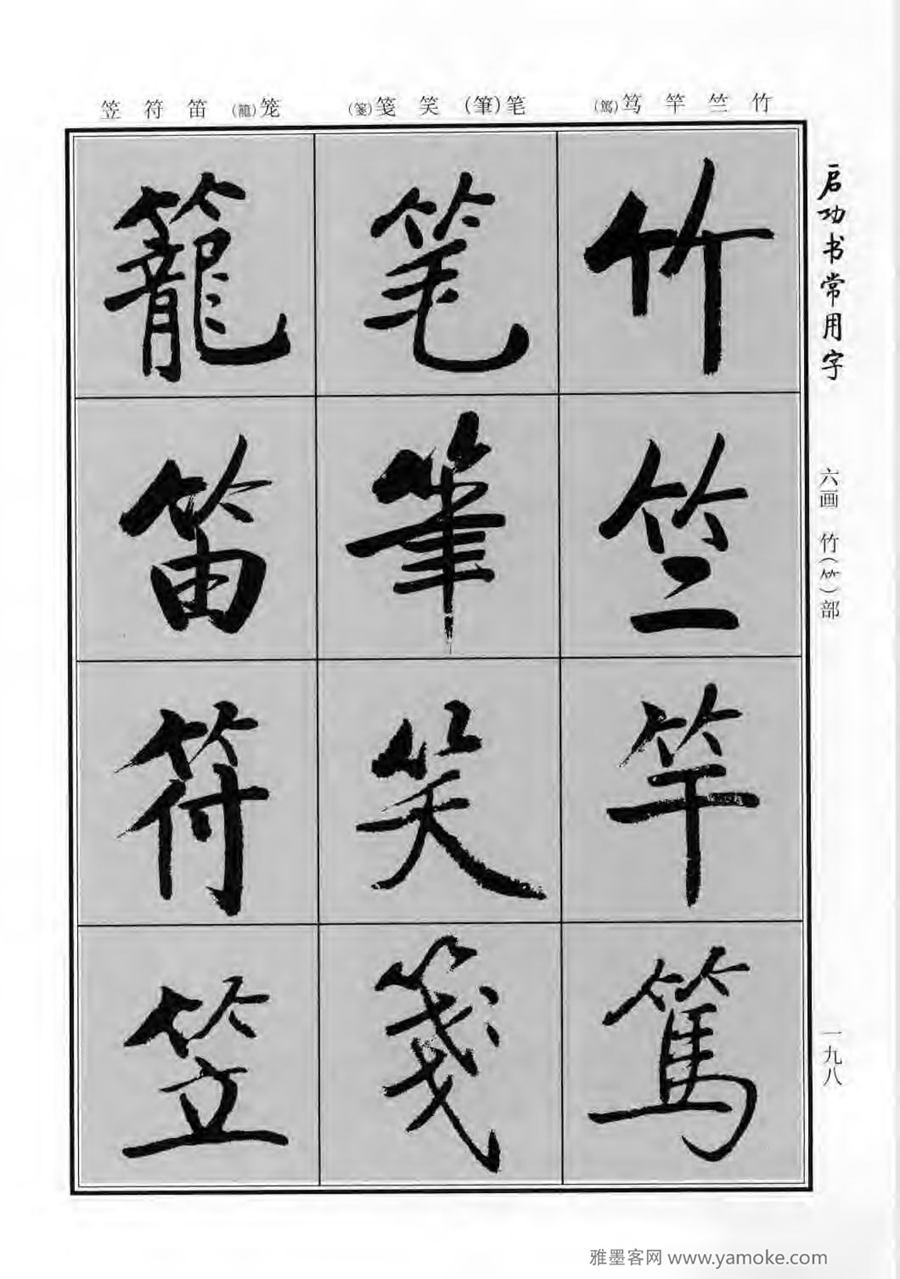 竹 竺 竿 笃(篤)
笔(筆) 笑 笺(箋)
笼(籠) 笛 符 笠
启功书常用字
六画 竹(⺮)部
一九八
竹
竺
竿
篤
笔
筆
笑
箋
籠
笛
符
笠
雅墨客网 www.yamoke.com